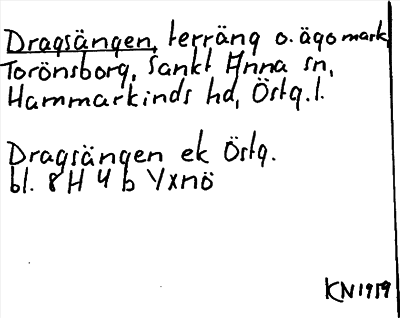 Dragsängen, terräng o. ägomark
Torönsborg, Sankt Anna sn,
Hammarkinds hd, Östg.l.
Dragsängen ek Östg.
bl. 8H 4b Yxnö
KN 1959